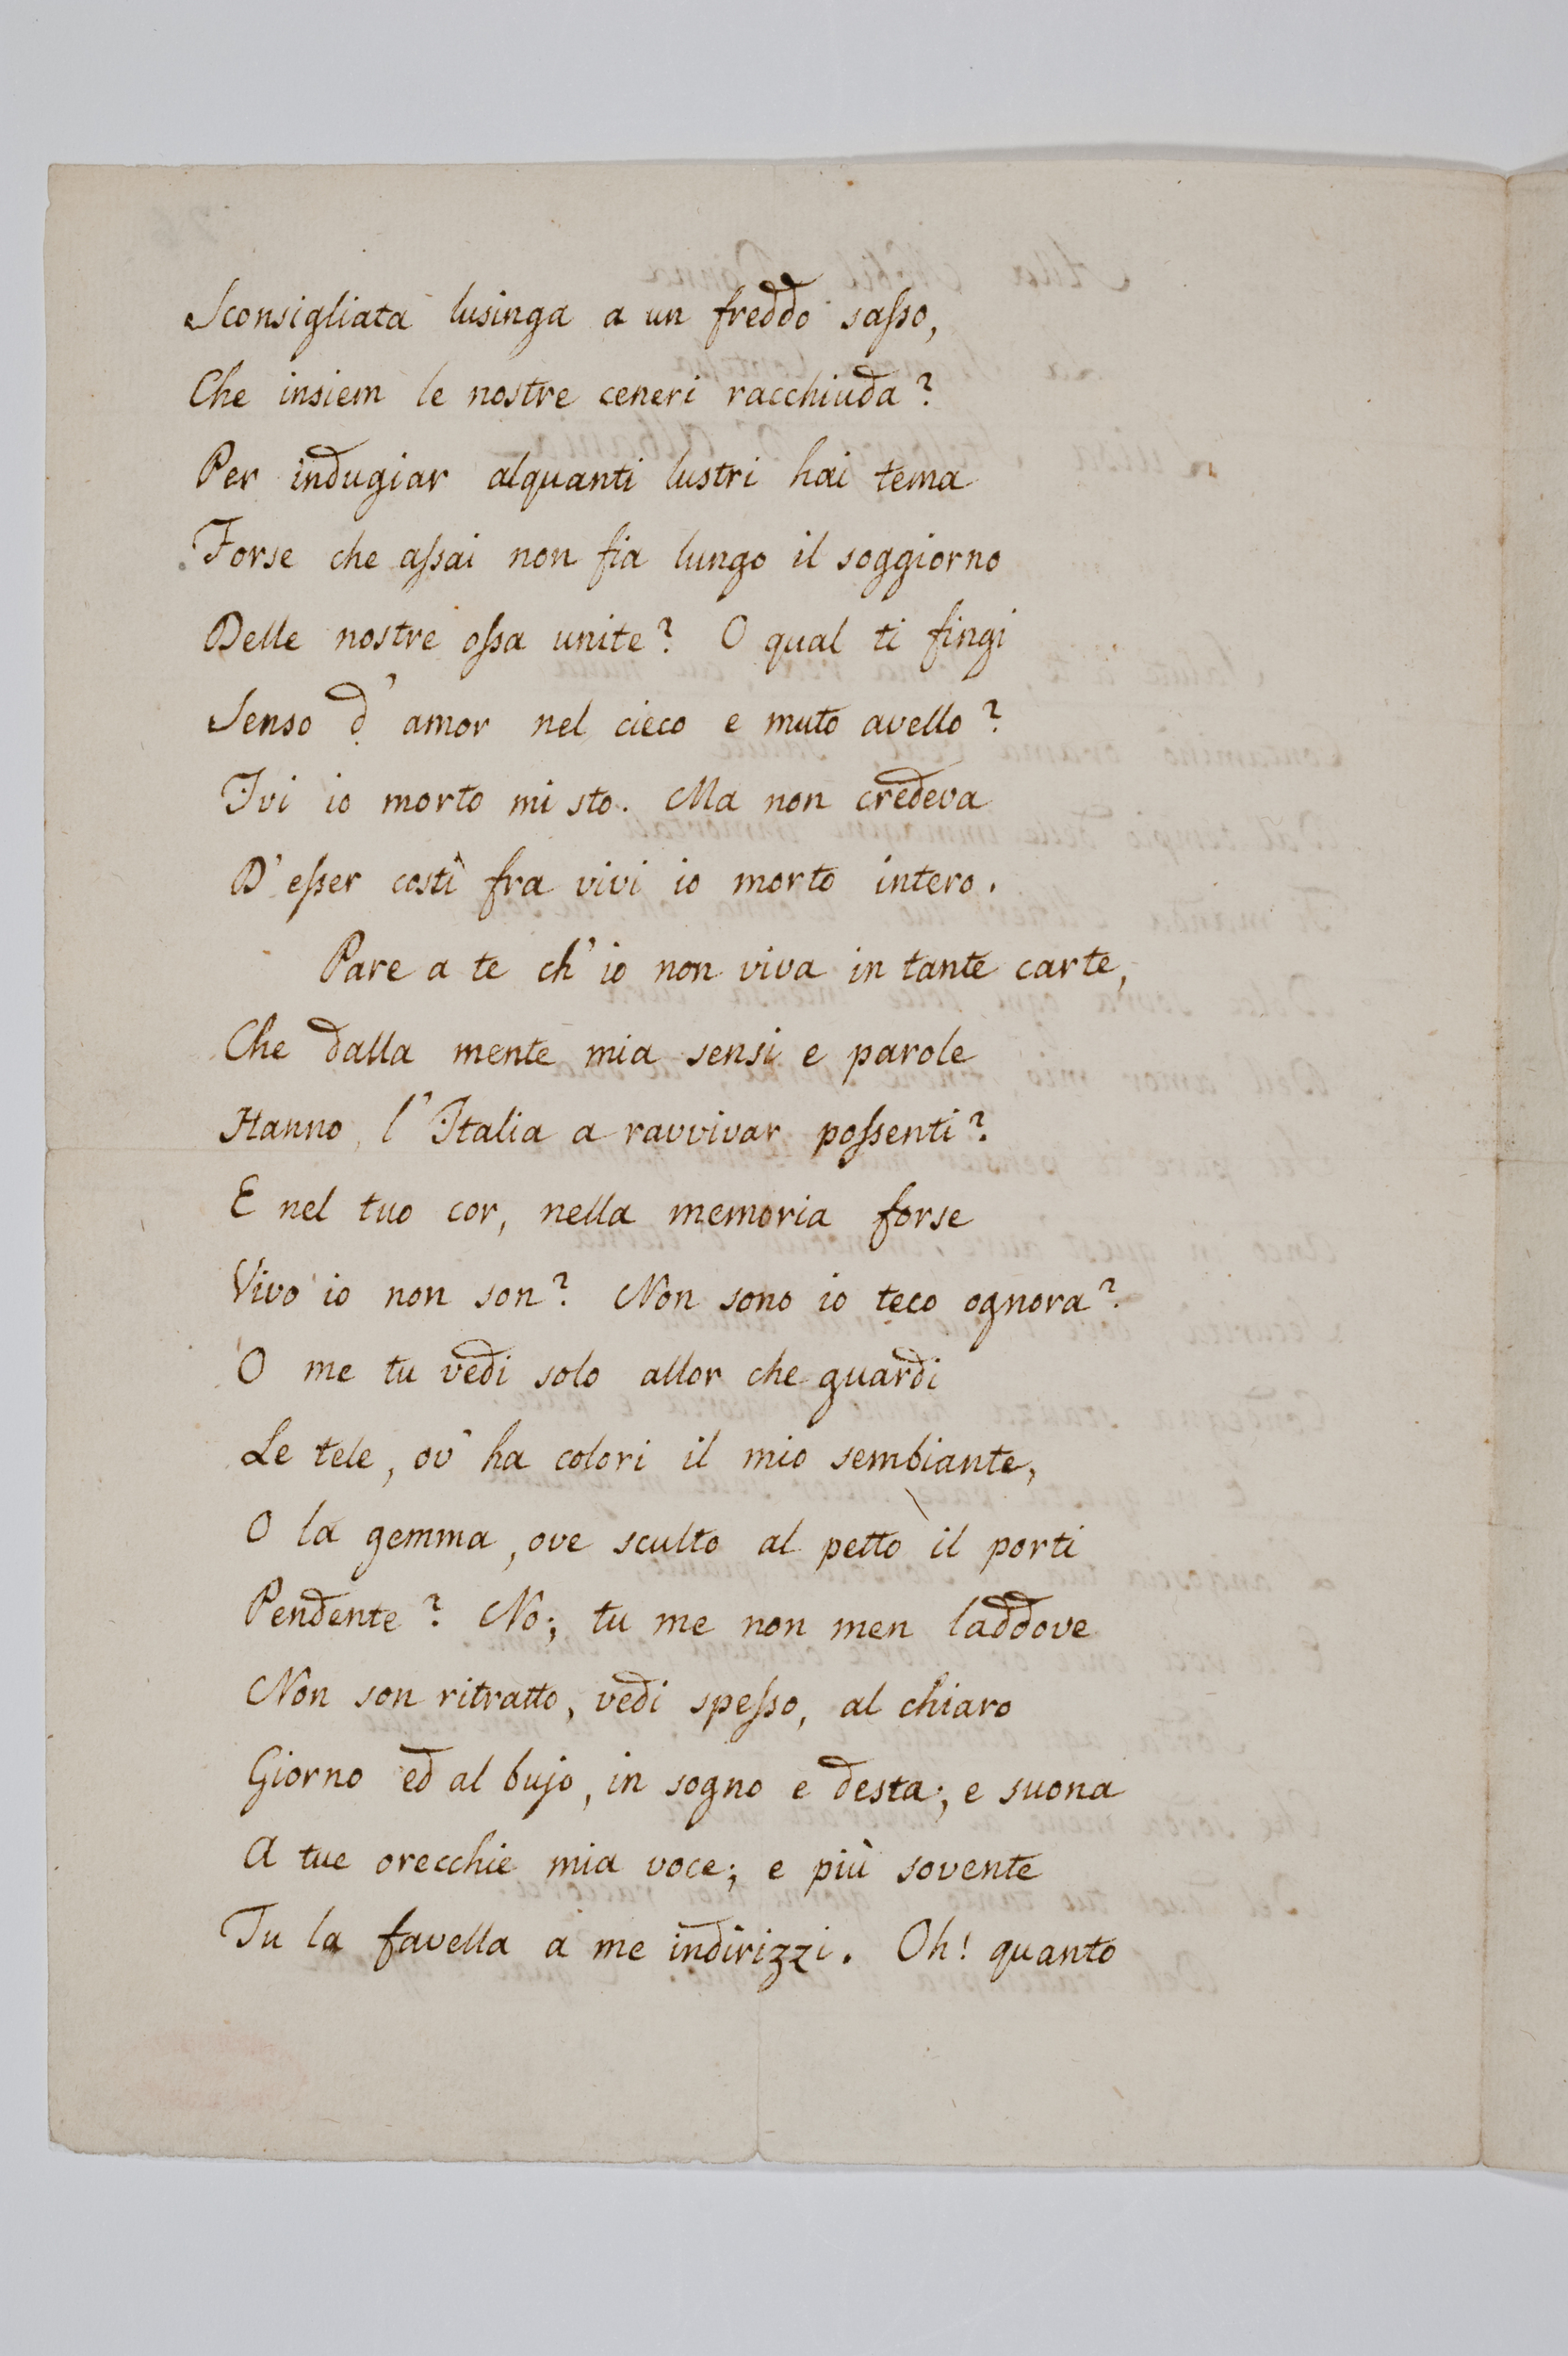 Sconsigliata lusinga a un freddo sasso,
Che insiem le nostre ceneri racchiuda?
Per indugiar alquanti lustri hai tema
Forse che assai non fia lungo il soggiorno
Delle nostre ossa unite? O qual ti fingi
Senso d'amor nel cieco e muto avello?
Ivi io morto mi sto. Ma non credeva
D'esser costì fra vivi io morto intero.
Pare a te ch'io non viva in tante carte,
Che dalla mente mia sensi e parole
Hanno, l'Italia a ravvivar possenti?
E nel tuo cor, nella memoria forse
Vivo io non son? Non sono io teco ognora?
O me tu vedi solo allor che guardi
Le tele, ov'ha colori il mio sembiante,
O la gemma, ove sculto al petto il porti
Pendente? No; tu me non men laddove
Non son ritratto, vedi spesso, al chiaro
Giorno ed al bujo, in sogno e desta; e suona
A tue orecchie mia voce; e più sovente
Tu la favella a me indirizzi. Oh! quanto